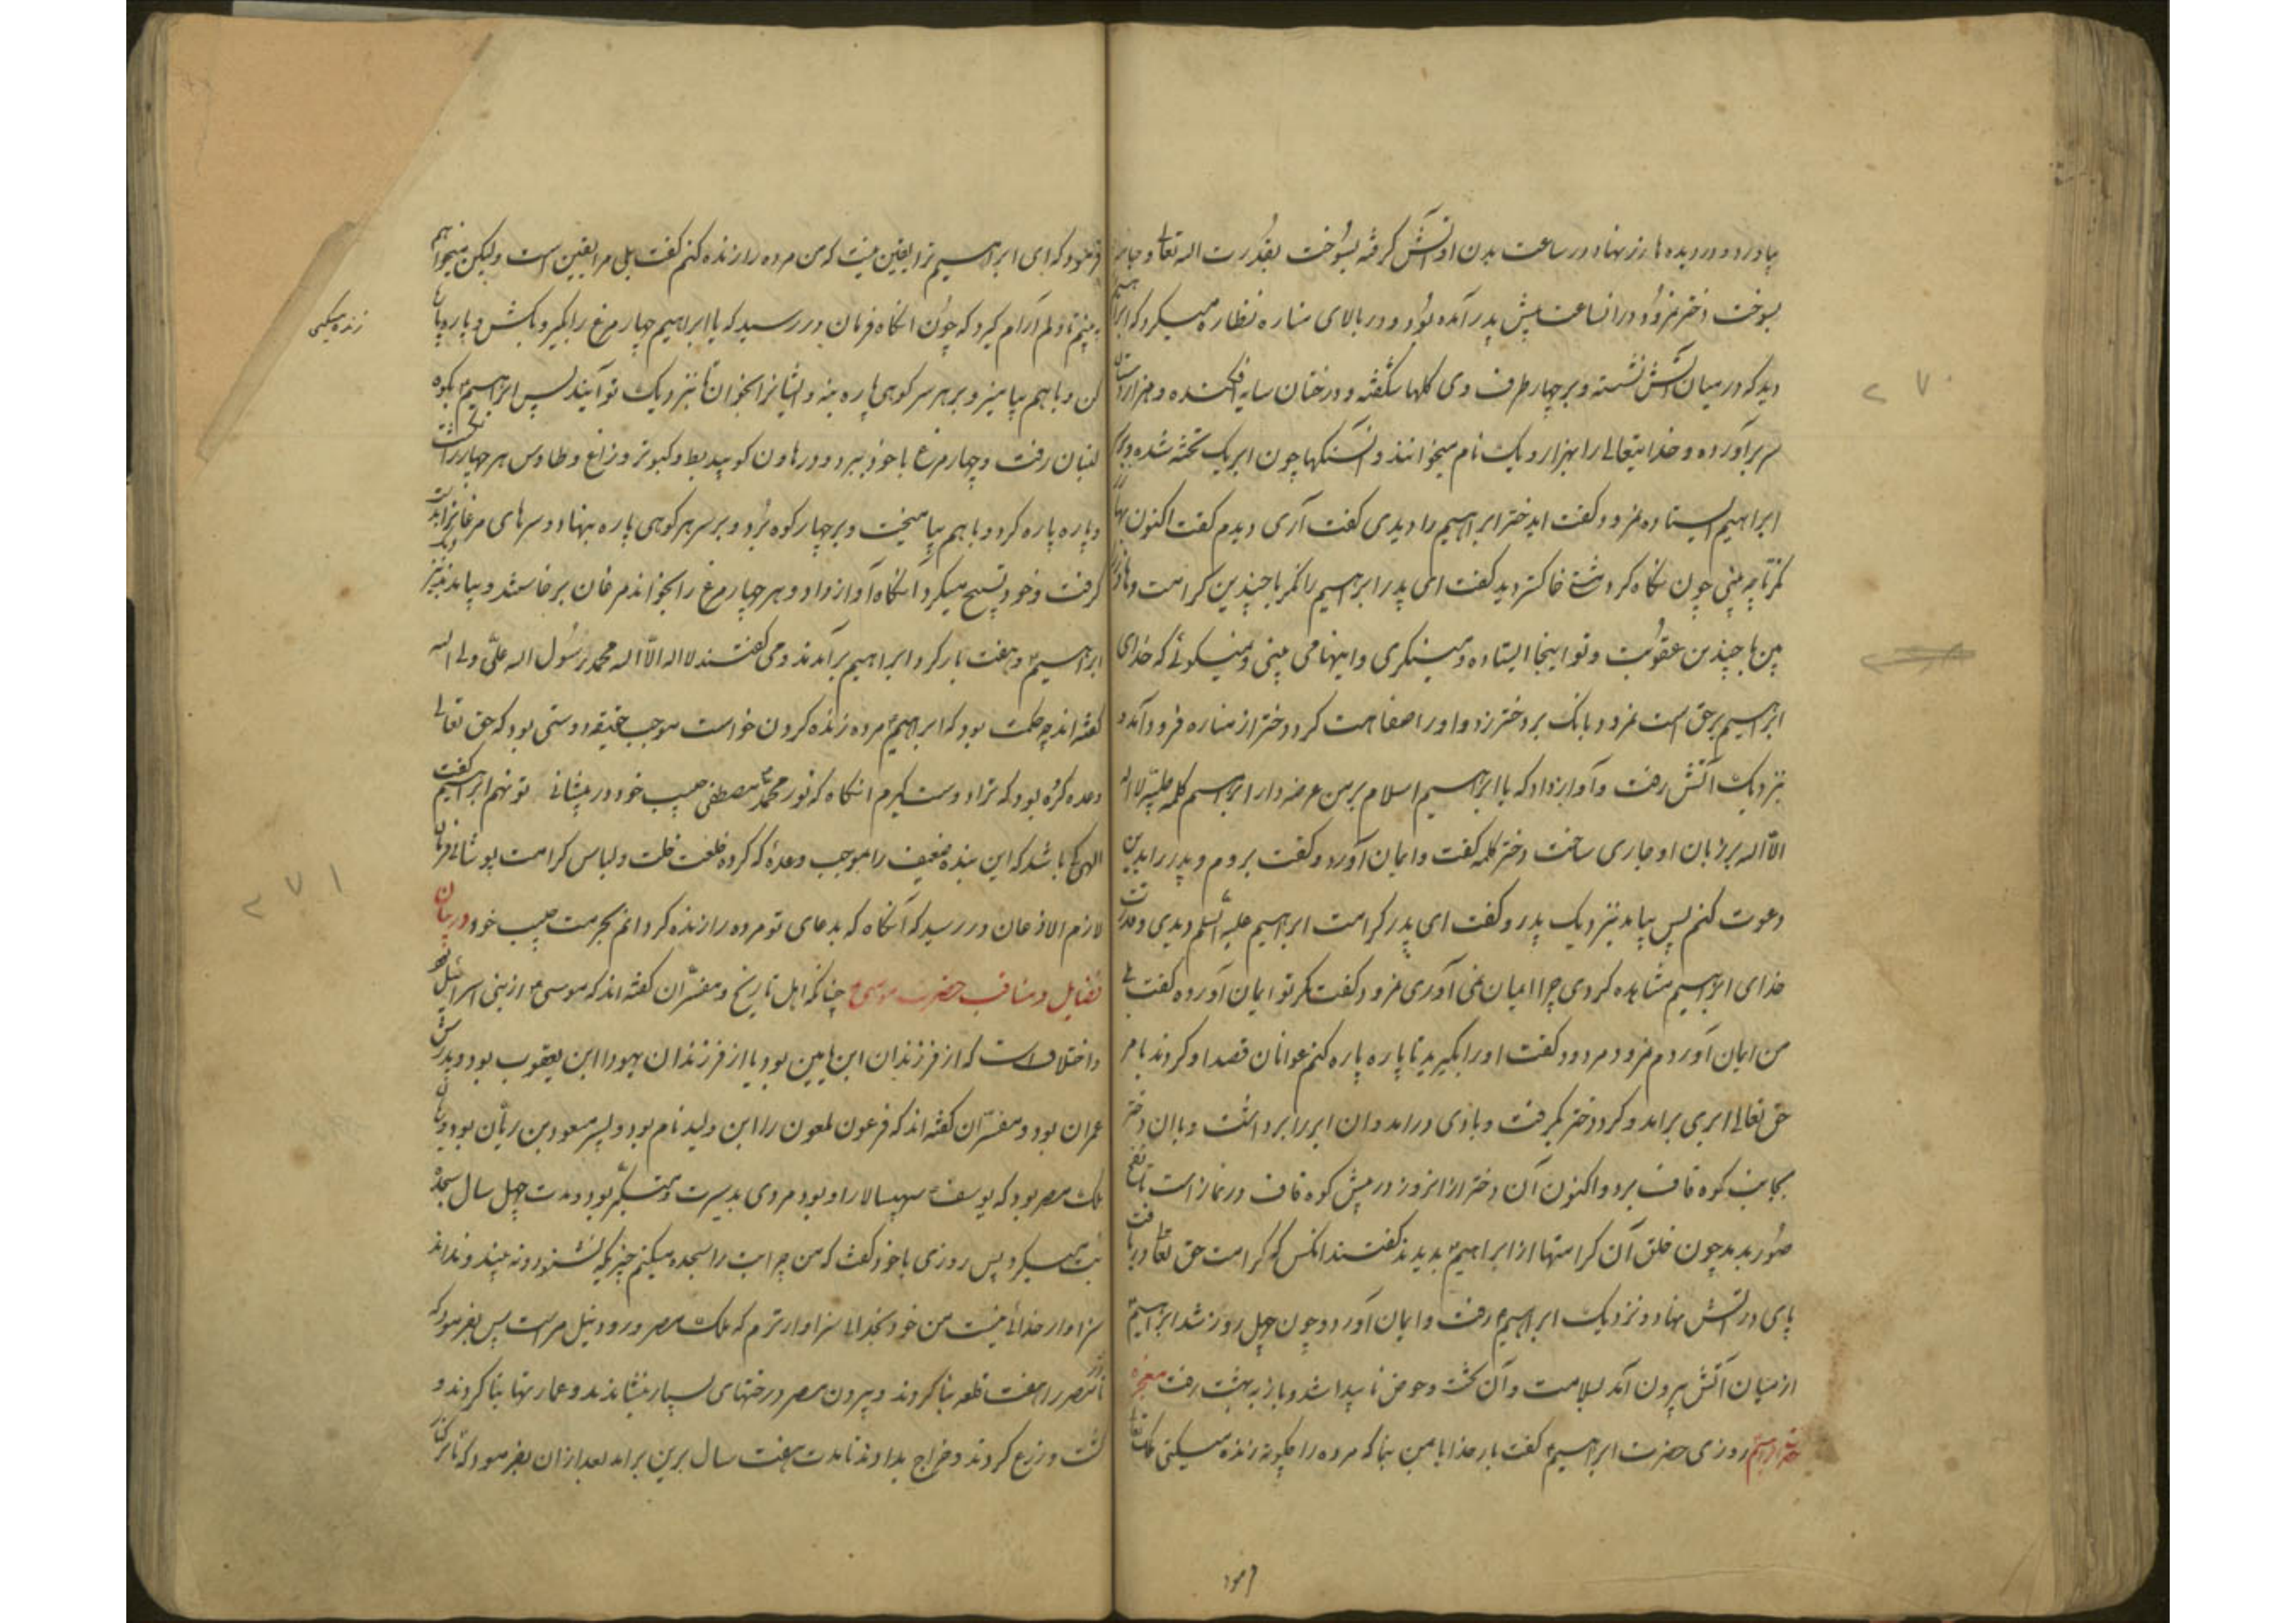 بیاورد و در دیدهاء نهاد در ساعت بدن او آتش گرفته بسوخت بقدرت اله تعالی و جابر
بسوخت دختر نمرود در انساعت پیش پدر آمده بود و در بالای مناره نظاره میکرد که ابراهیم
دید که در میان آتش نشسته و بر چهار طرف وی کلها شکفته و درختان سایه افکنده و هزار دستان
سر برآورده و خدایتعالی را بهزار و یک نام میخوانند و سنکها چون ابر یک تخته شده
ابراهیم ایستاده نمرود کفت ایدختر ابراهیم را دیدی کفت آری دیدم کفت اکنون
نکر تا چه بینی چون نکاه کرد مشتی خاکستر دید کفت ای پدر ابراهیم را نکر با چندین کرامت و
بین با چندین عقوبت و تو اینجا ایستاده و مینکری و اینها می بینی و نمیکوئی که خدای
ابراهیم بر حق است نمرود بانک بر دختر زد و او را سفاهت کرد دختر از مناره فرود آمد و
بنزدیک آتش رفت و آواز داد که یا ابراهیم اسلام بر من عرضه دار ابراهیم کلمه طیبه لا اله
الا اله بر زبان او جاری ساخت دختر کلمه کفت و ایمان آورد و کفت بروم و پدر را بدین
دعوت کنم پس بیامد بنزدیک پدر و کفت ای پدر کرامت ابراهیم علیه السلم دیدی و قدرت
خدای ابراهیم مشاهده کردی چرا ایمان نمی آوری نمرود کفت مکر تو ایمان آورده کفت بلی
من ایمان آوردم نمرود مردود کفت او را بکیرید تا پاره پاره کنم عوانان قصد او کردند بامر
حق تعالی ابری برامد و کرد دختر بکرفت و بادی درامد و ان ابر را برداشت و باان دختر
بجانب کوه قاف برد و اکنون آن دختر از انروز در پیش کوه قاف در نماز است تا نفخ
صور بدمد چون خلق آن کرامتها از ابراهیم بدیدند کفتند انکس که کرامت حق تعالی دریافت
پای در آتش نهاد و نزدیک ابراهیم رفت و ایمان آورد و چون چهل روز شد ابراهیم
از میان آتش بیرون آمد بسلامت و آن تخت و حوض ناپیدا شد و باز به بهشت رفت معجزه
حضرت ابراهیم روزی حضرت ابراهیم کفت بار خدایا بمن بنما که مرده را چکونه زنده میکنی
فرمود
۲۷۰
فرمود که ای ابراهیم ترا یقین نیست که من مرده را زنده کنم کفت بلی مرا یقین است ولیکن میخواهم
به بینم تا دلم آرام کیرد که چون زنده میکنی انکاه فرمان در رسید که یا ابراهیم چهار مرغ را بکیر و بکش و پاره پاره
کن و باهم بیامیز و بر هر سر کوهی پاره بنه و ایشانرا بخوان تا بنزدیک تو آیند پس ابراهیم بکوه
لبنان رفت و چهار مرغ با خود ببرد و در هاون کوبید بط و کبوتر و زاغ و طاوس هر چهار را بکشت
و پاره پاره کرد و باهم بیامیخت و بر چهار کوه برد و بر سر هر کوهی پاره بنهاد و سرهای مرغانرا بدست
کرفت و خود تسبیح میکرد آنکاه آواز داد و هر چهار مرغ را بخواند مرغان برخاستند و بیامدند نزد
ابراهیم و هفت بار کرد ابراهیم برآمدند و می کفتند لا اله الا اله محمد رسول اله علی ولی اله
کفته اند چه حکمت بود که ابراهیم مرده زنده کردن خواست موجب حقیقه دوستی بود که حق تعالی
وعده کرده بود که ترا دوست کیرم انکاه که نور محمد مصطفی حبیب خود در پیشانی تو نهم ابراهیم کفت
الهی کی باشد که این بنده ضعیف را بموجب وعدهٔ که کرده خلعت خلت و لباس کرامت پوشانی فرمان
لازم الاذعان در رسید که آنکاه که بدعای تو مرده را زنده کردانم بحرمت حبیب خود در بیان
فضایل و مناقب حضرت موسی چنانکه اهل تاریخ و مفسران کفته اند که موسی از بنی اسرائیل بود
و اختلافست که از فرزندان ابن یامین بود یا از فرزندان یهودا ابن یعقوب بود و پدرش
عمران بود و مفسران کفته اند که فرعون لعون را ابن ولید نام بود و پسر مسعود بن ریان بود و ریان
ملک مصر بود که یوسف سپهسالار او بود مردی بدسیرت و متکبر بود و مدت چهل سال سجده
بت میکرد پس روزی با خود کفت که من چرا بت را سجده میکنم چیزیکه نشنود و نه بیند و نداند
سزاوار خدائی نیست من خود بخدائی سزاوارترم که ملک مصر و رود نیل مراست پس بفرمود که
تا مصر را هفت قلعه بنا کردند و بیرون مصر درختهای بسیار بنشاندند و عمارتها بنا کردند و
کشت و زرع کردند و خراج بدادند تا مدت هفت سال برین برامد بعد از ان بفرمود که تا بر کنار
زنده میکنی
۲۷۱